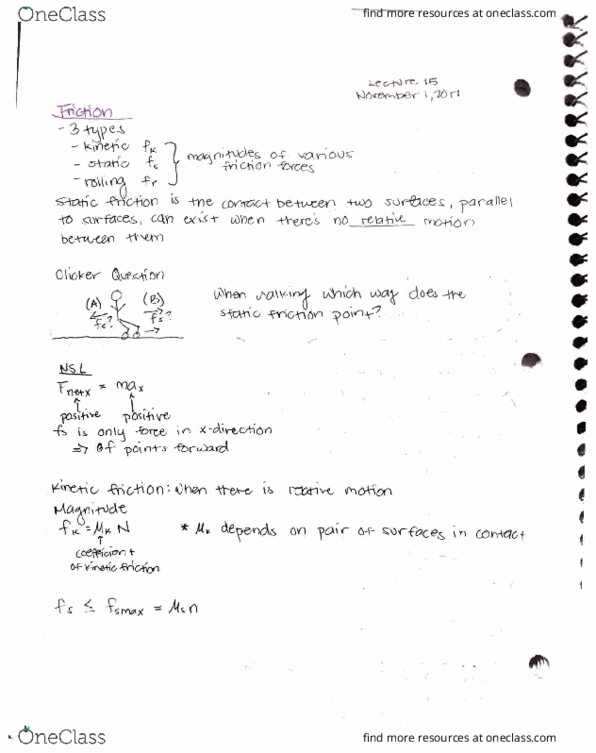 OneClass
find more resources at oneclass.com
Lecture 15
November 1, 2017
Friction
- 3 types
- kinetic fk
- static fs
- rolling fr
magnitudes of various
friction forces
static friction is the contact between two surfaces, parallel
to surfaces, can exist when there's no relative motion
between them
Clicker Question
(A) (B)
fs? fs?
When walking which way does the
static friction point?
NSL
Fnetx = max
positive positive
fs is only force in x-direction
⇒ points forward
Kinetic friction: when there is relative motion
Magnitude
fk = μk N * μk depends on pair of surfaces in contact
coefficient
of kinetic friction
fs ≤ fsmax = μs n
OneClass
find more resources at oneclass.com